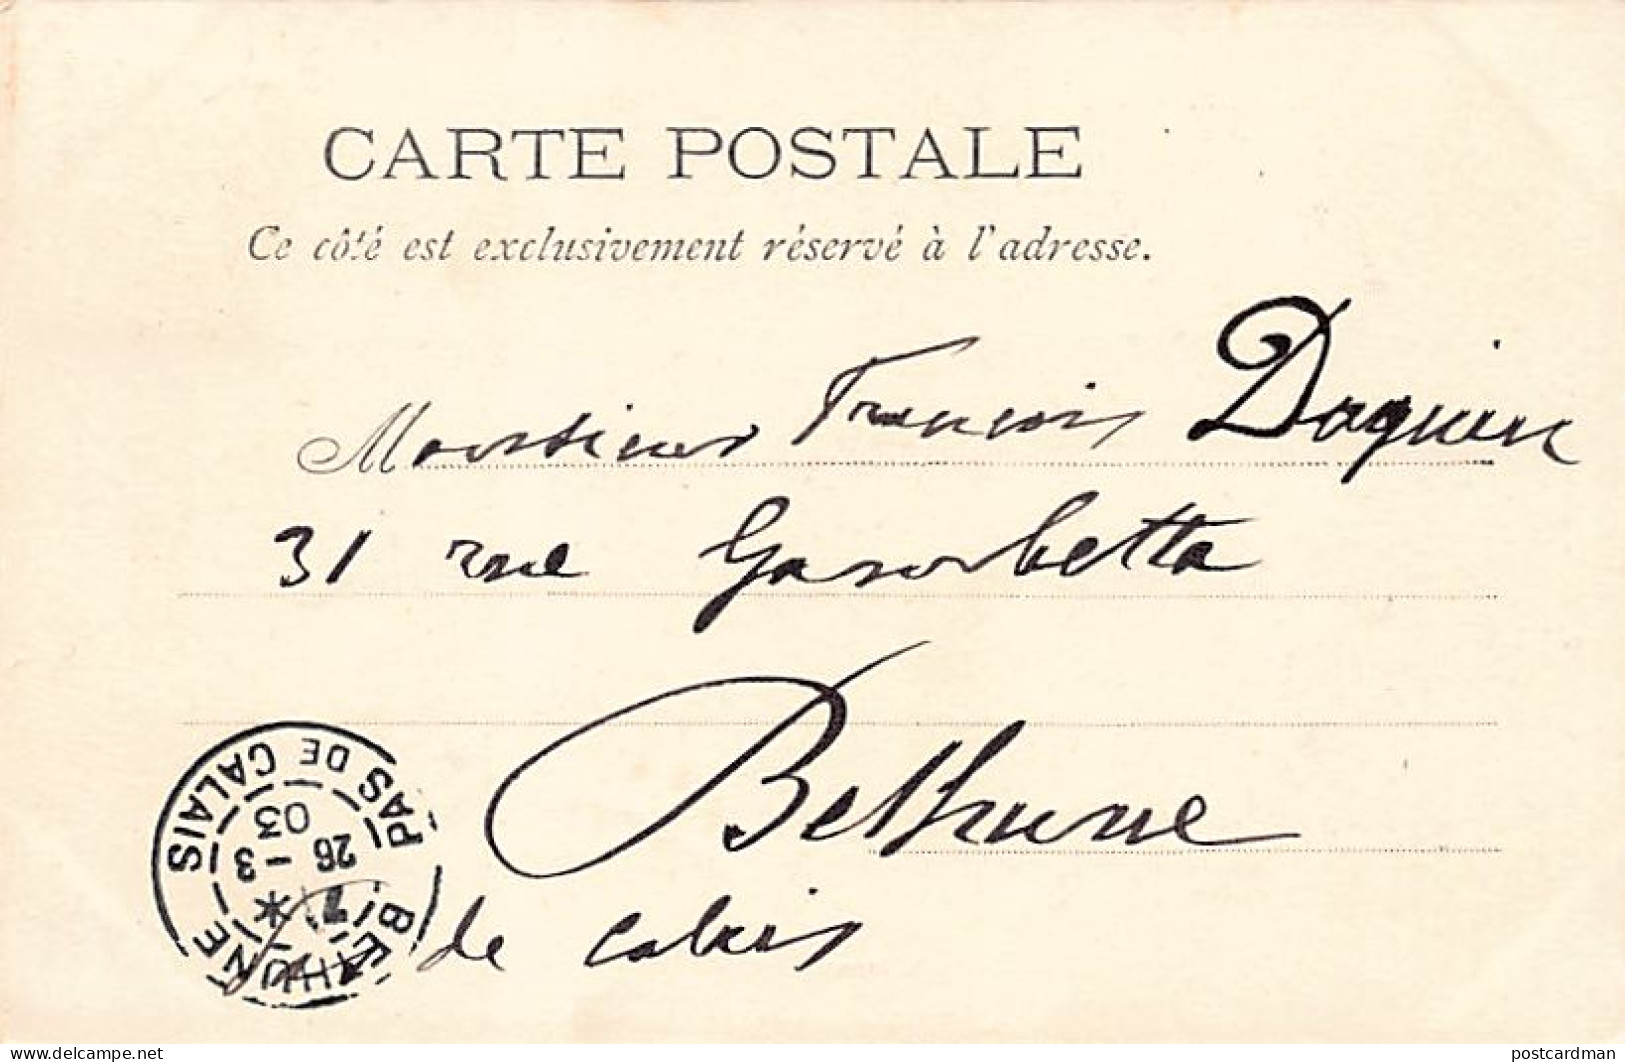 CARTE POSTALE
Ce côté est exclusivement réservé à l'adresse.
Monsieur François Daquin
31 rue Gambetta
Bethune
Pas de Calais
BETHUNE
PAS DE CALAIS
7 *
26 - 3
03
postcards-for-sale on delcampe.net
postcardman